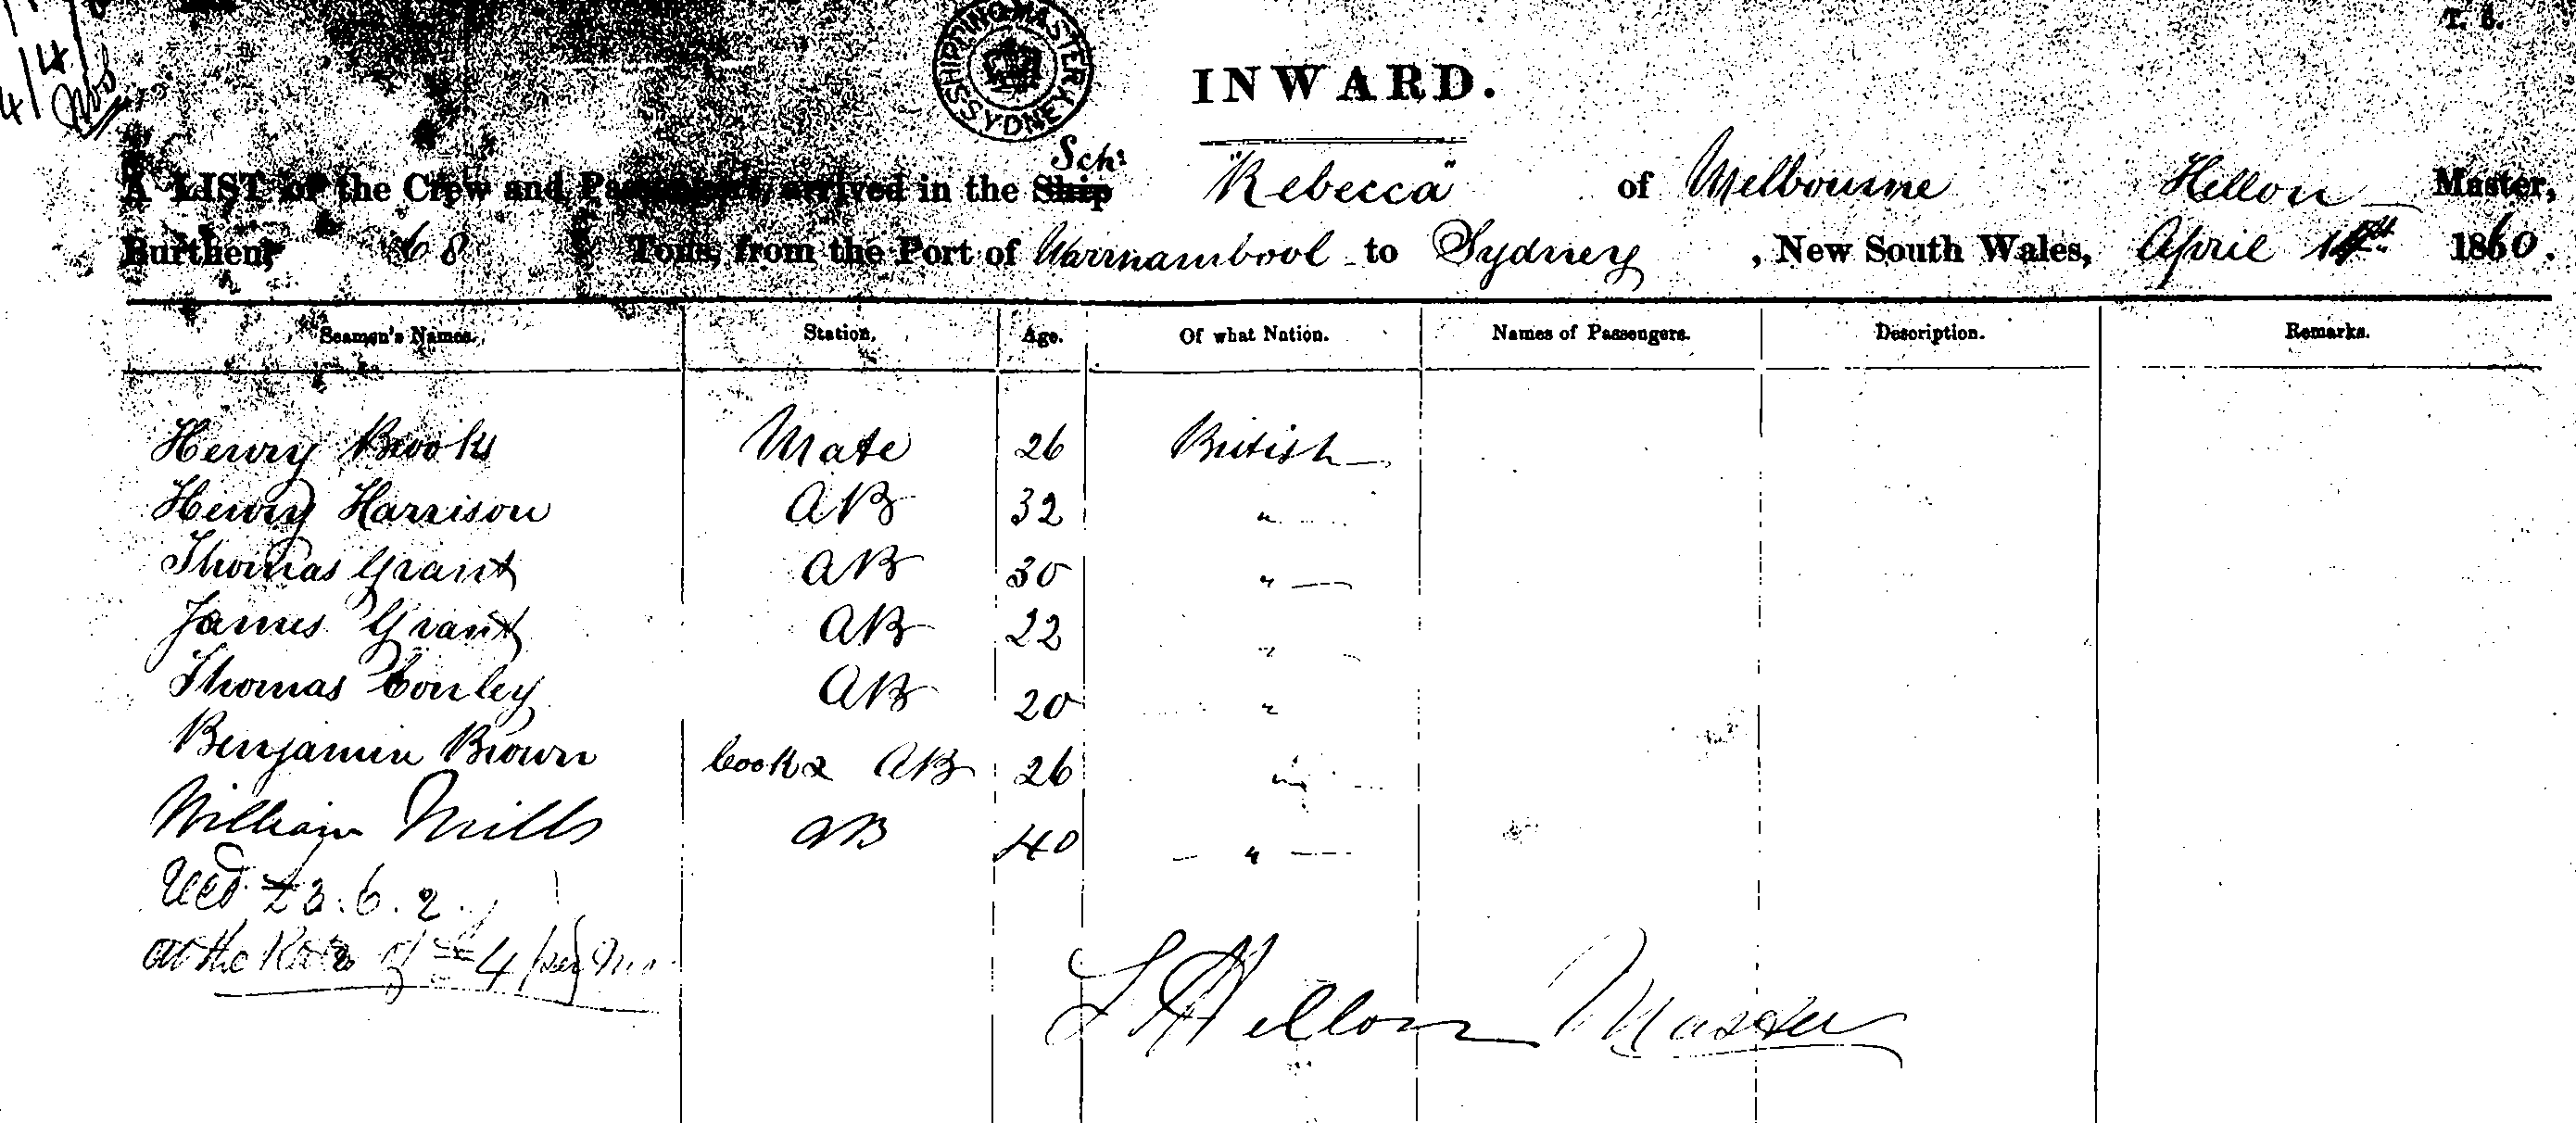 T. 6.
SHIPPING MASTER SYDNEY
INWARD.
A LIST of the Crew and Passengers, arrived in the Ship Schr "Rebecca" of Melbourne Hellon Master,
Burthen, 68 Tons, from the Port of Warrnambool to Sydney, New South Wales, April 14th 1860.
Seamen's Names. Station. Age. Of what Nation. Names of Passengers. Description. Remarks.
Henry Brooks Mate 26 British
Henry Harrison AB 32 "
Thomas Grant AB 30 "
James Grant AB 22 "
Thomas Conley AB 20 "
Benjamin Brown Cook & AB 26 "
William Mills AB 40 "
£3.6.2
at the Rate of £4 per Mo
Hellon Master